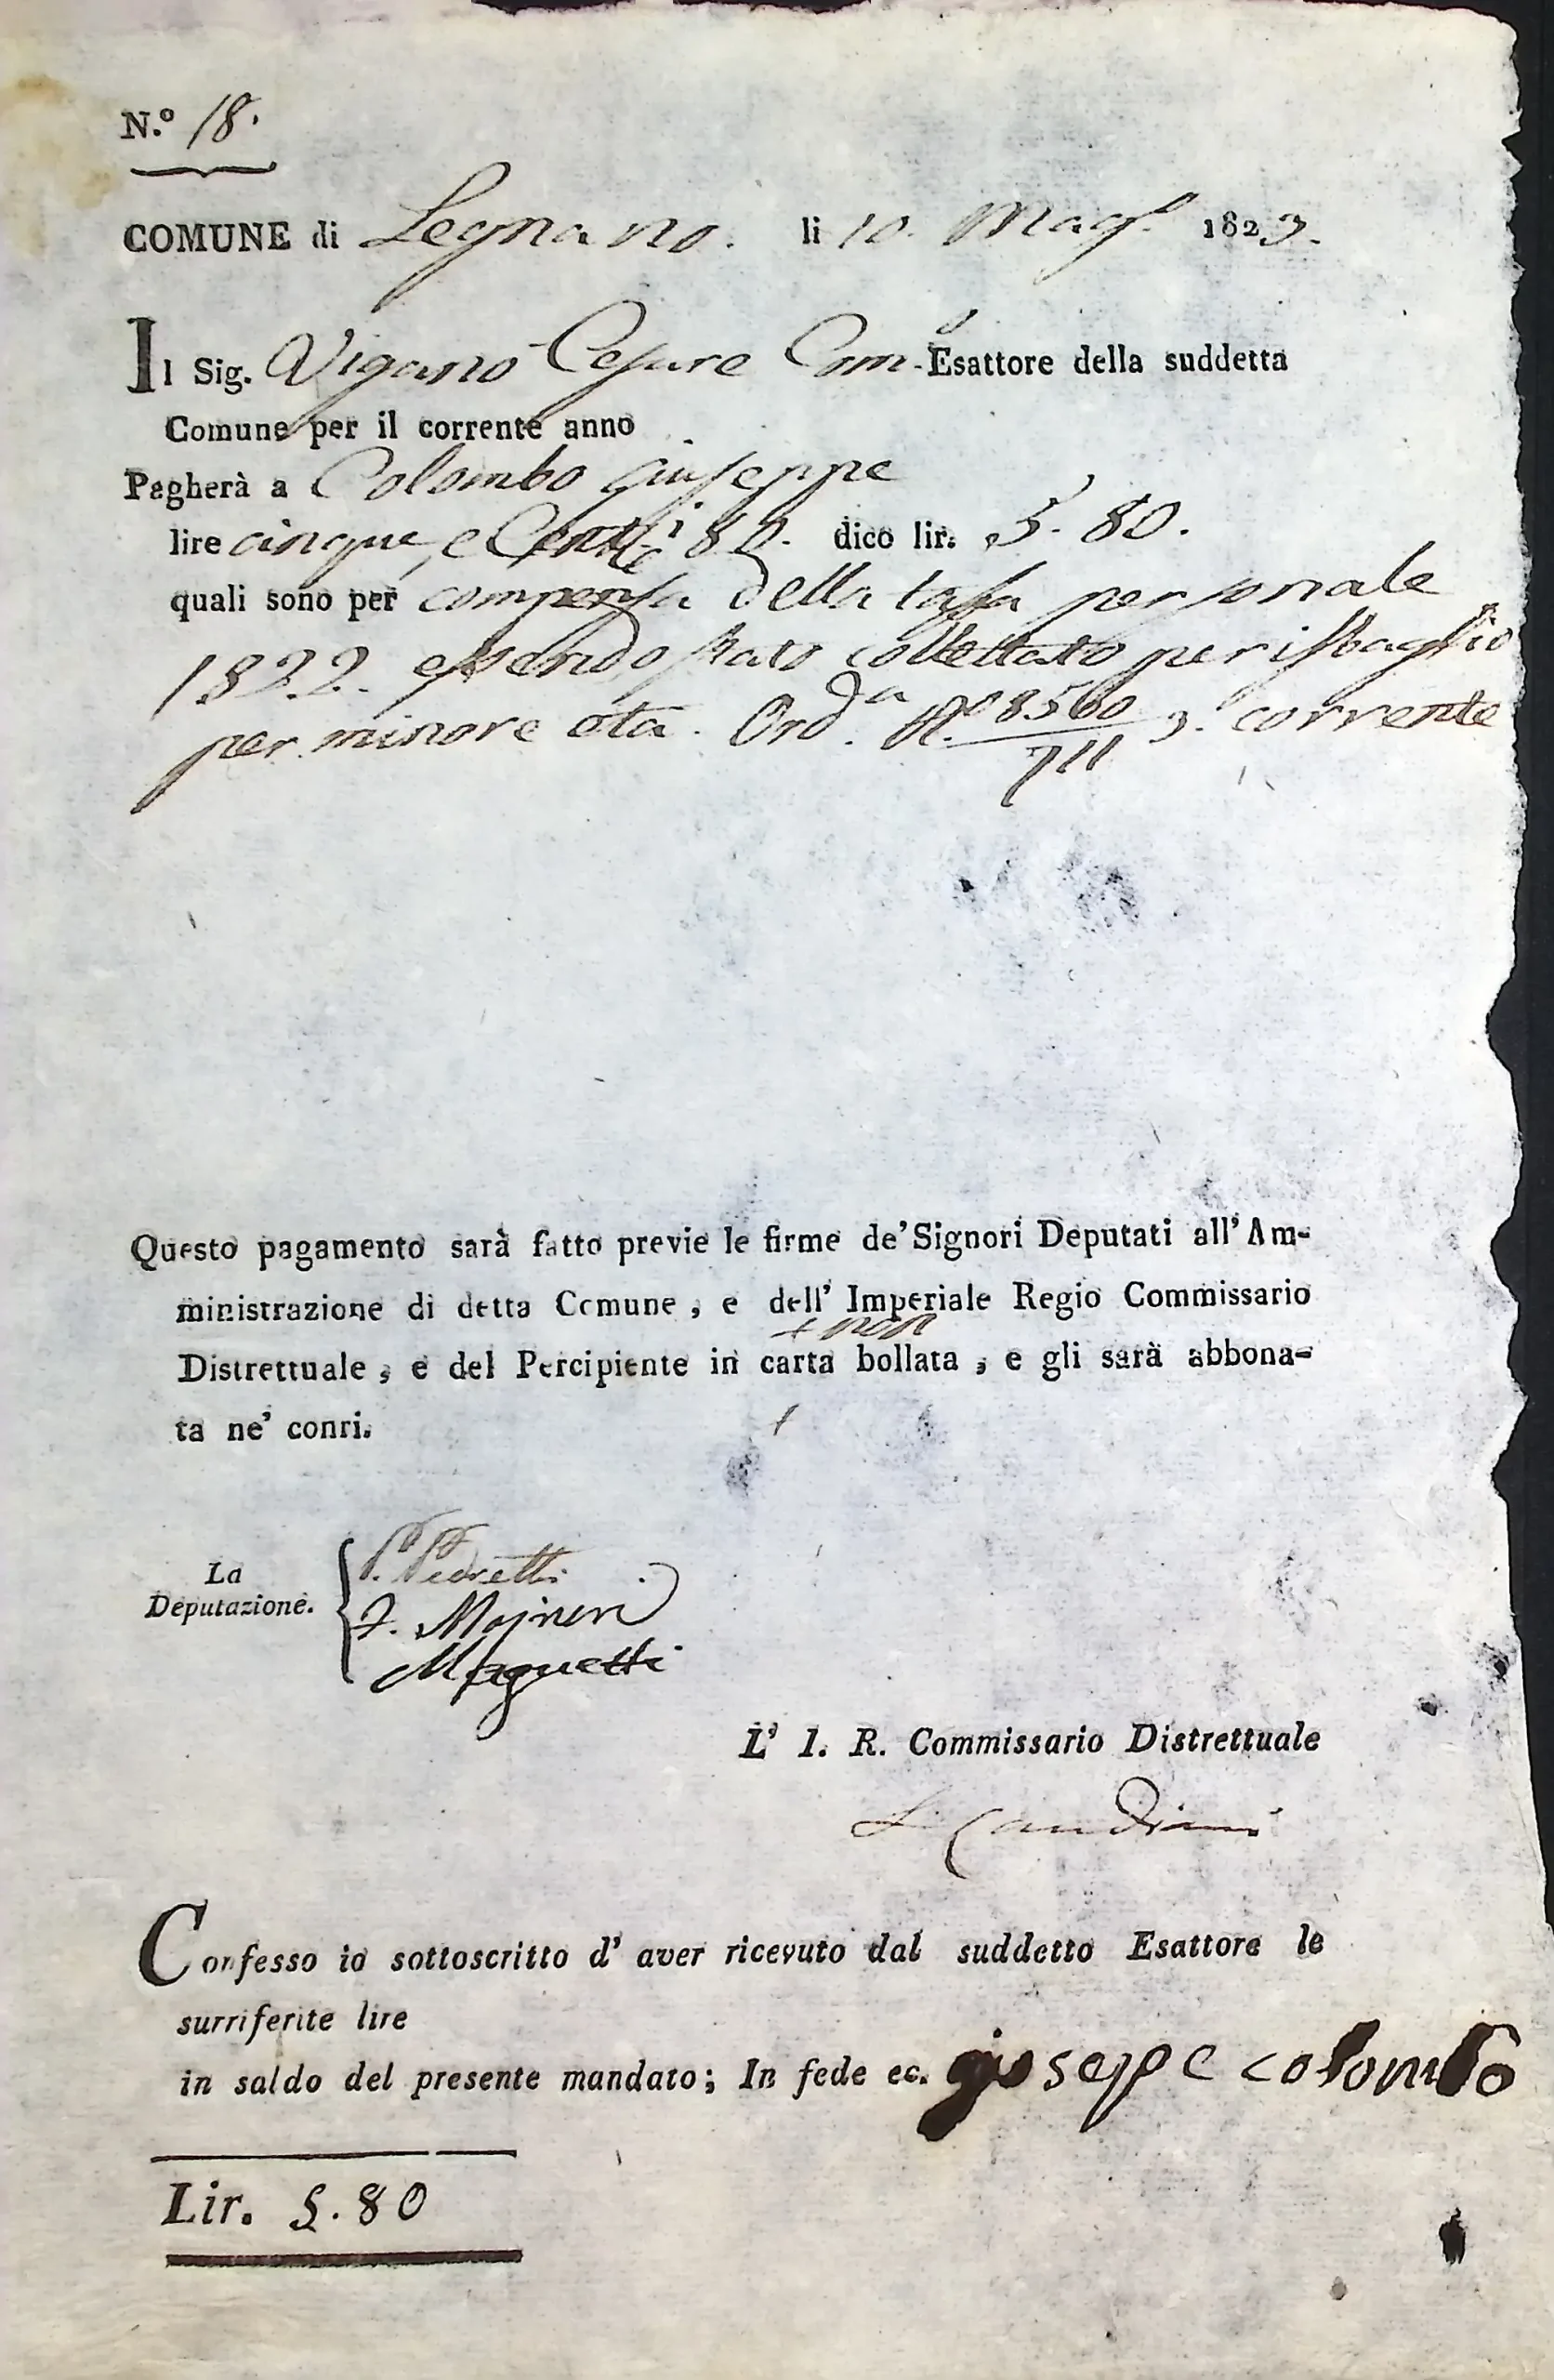 N.º 18.
COMUNE di Legnano. li 10. Magº 1823.
Il Sig. Viganò Cesare Com.e Esattore della suddetta
Comune per il corrente anno
Pagherà a Colombo Giuseppe
lire cinque, e Cent.i 80. dico lir. 5. 80.
quali sono per compensa della tassa personale
1822. essendo stato collettato per isbaglio
per minore età. Ord.a N.º 8560/711 3. corrente
+ non
Questo pagamento sarà fatto previe le firme de' Signori Deputati all' Am-
ministrazione di detta Comune, e dell' Imperiale Regio Commissario
Distrettuale, e del Percipiente in carta bollata, e gli sarà abbona-
ta ne' conri.
La
Deputazione.
P. Pedretti
Magnetti
L' I. R. Commissario Distrettuale
Confesso io sottoscritto d' aver ricevuto dal suddetto Esattore le
surriferite lire
in saldo del presente mandato; In fede ec. giuseppe colombo
Lir. 5. 80